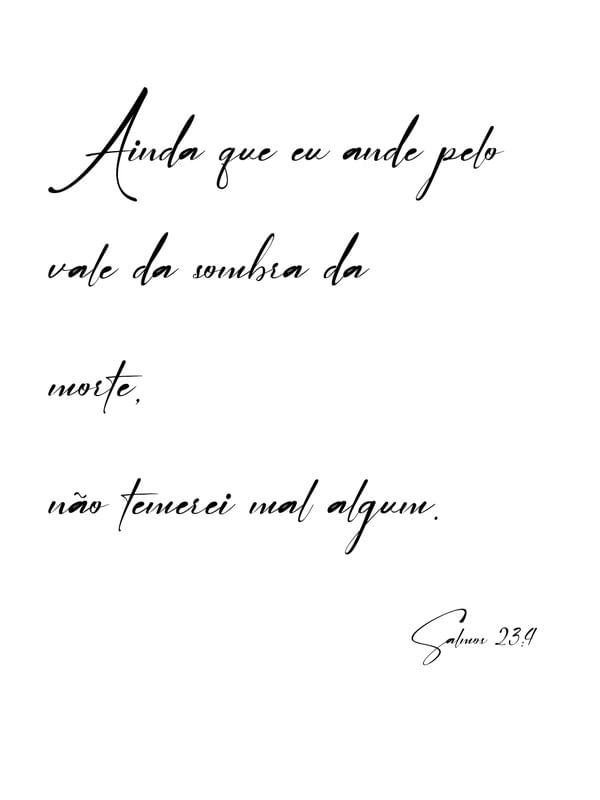 Ainda que eu ande pelo
vale da sombra da
morte,
não temerei mal algum.
Salmos 23:4